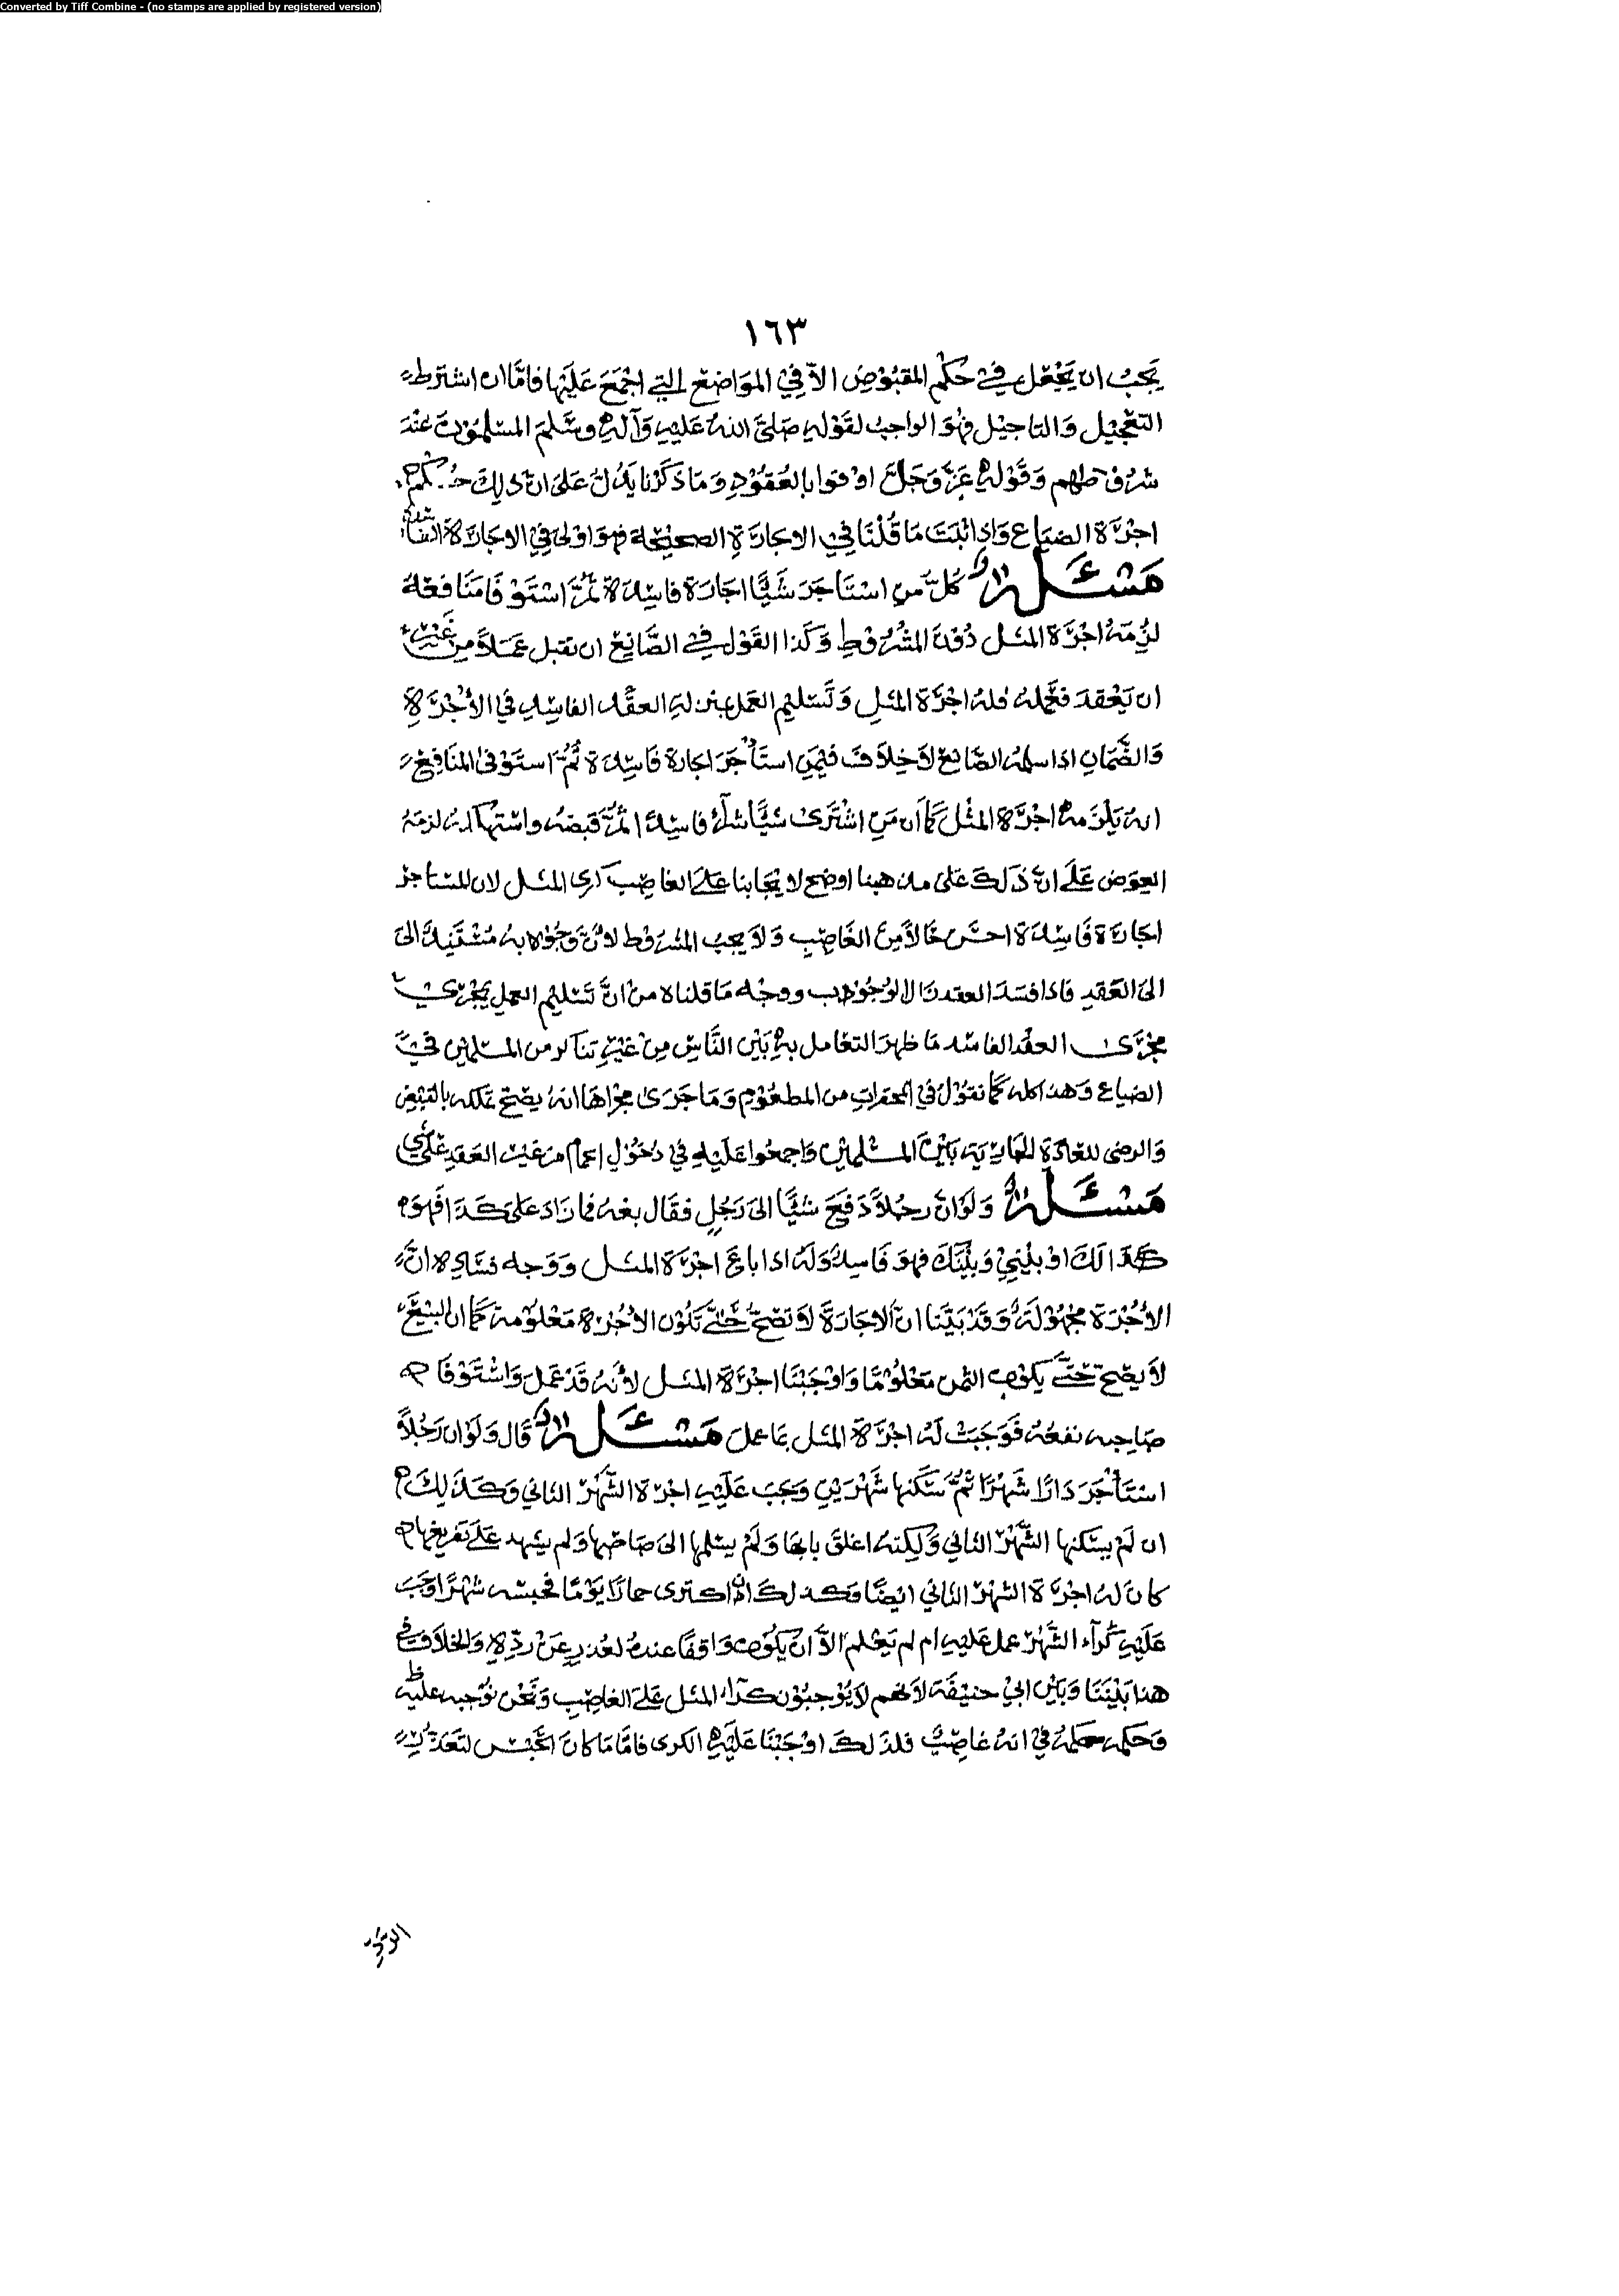 Converted by Tiff Combine - (no stamps are applied by registered version)
١٦٣
يَجِبُ ان يَجْعَل في حُكْم المقبُوْض الاّ فِي المَوَاضِع التي اجْمَعَ عَلَيْهَا فامَّا ان اشترط
التعْجيْل وَالتاجيْل فهْوَ الواجب لقَوْلهِ صَلىَّ اللهُ عَليهِ وَآلهِ وسَلمَ المسْلموْنَ عنْدَ
شرُوْطهم وَقوْلهِ عَزَّ وَجَلَّ اوْفوا بالعُقُوْدِ وَمَا ذكَرْنا يَدُلُّ عَلىَ انّ ذلِكَ حُكم
اجْرَة الضيَاع وَاذا ثبَتَ مَا قُلْنَا فِي الاجَارَةِ الصحيْحَة فهوَ اوْلىَ فِي الاجَارَة الفاسدة
مَسْئَلة كُلُّ من اسْتَاجَرَ شَيْئًا اجَارَة فاسِدَة ثمَّ اسْتَوْفَا مَنَافعَهُ
لزمَهُ اجْرَة المثل دُوْنَ المشْرُوْطِ وَكَذا القَوْل في الصَّانِع ان تقبل عَمَلاً من غَيْر
ان يَعْقدَ فعَمله فلهُ اجْرَة المثلِ وَتَسْليْم العَمل بمنزلهِ العقْد الفاسِدِ في الأجْرَةِ
وَالضَّمَانِ اذا سلمهُ الصَّانِع لاَ خِلاَفَ فيْمَنِ استَأجَرَ اجارة فاسِدَة ثُمَّ استَوْفىَ المنَافِعَ
انهُ يَلْزَمهُ اجْرَة المثْل كمَا أن مَنِ اشْتَرَىَ شيْئًا شرَآءً فاسِدًا ثمَّ قبَضهُ واسْتَهْلَكهُ لزمَهُ
العِوَض عَلَى انّ ذَلكَ عَلىَ مذهبنا اوضح لايجابنا عَلىَ الغاصِب كرى المثل لان المسْتاجر
اجَارَة فاسِدَة احسَن حَالاً مِنَ الغَاصِبِ وَلاَ يجبُ المشرُوْط لانّ وجُوْبهُ مُسْتنِدٌ الىَ
الىَ العَقدِ فَاذا فسَدَ العقد زَال الوُجُوْب ووجْه مَا قلناه من انّ تَسْليْم العمل يجْرِي
مجْرَىَ العقْد الفاسد مَا ظهرَ التعَامل بهِ بَيْن النَّاسِ مِنْ غيْرِ تناكر من المسْلميْن في
الضياع وَهذا كله كمَا نقوْل في المحقرَات من المطعُوْمِ وَمَا جَرَىَ مجْرَاهَا انهُ يصحّ تملكه بالقبْض
وَالرضى للعَادَة الجارِيَة بَيْنَ المسْلميْن وَاجمعُوا عَلَيْهِ في دُخُوْل الحمام من غيْر العَقدِ عَلىَ شي
مَسْئَلة وَلوَ انّ رجُلاً دَفعَ شيْئًا الىَ رَجُلٍ فقال بعْه فما زَادَ علىَ كَذَا فَهوَ
كَذا لكَ اوْ بَيْنِيْ وَبَيْنَكَ فهوَ فاسِدٌ وَلهُ اذا باعَ اجْرَة المثل وَوَجه فسَادِه انَّ
الأُجْرَة مجْهُوْلَةٌ وَقَدْ بَيَّنا انّ الاجَارَة لاَ تصَحُّ حَتىَّ تكُوْن الأجْرَة مَعْلوْمة كمَا ان البَيْعَ
لاَ يصحّ حَتىَّ يكوْن الثمن مَعْلوْمًا وَاوْجَبْنَا اجْرَة المثل لأنهُ قدْ عَملَ وَاسْتَوْفَا
صَاحبه نفعهُ فَوَجَبَتْ لهُ اجْرَة المثل بمَا عمل مَسْئَلة قَال وَلوَ ان رَجُلاً
اسْتَأجَرَ دَارًا شَهْرًا ثمَّ سَكنهَا شَهْرَيْنِ وَجَبَ عَلَيْهِ اجْرَة الشّهْر الثاني وَكَذَلِكَ
ان لمْ يَسْكنهَا الشَّهْر الثاني وَلكِنهُ اغلقَ بابهَا وَلمْ يسَلمهَا الىَ صَاحبهَا وَلم يشهد عَلىَ تفريغهَا
كانَ لهُ اجْرَة الشهْر الثاني ايضًا وَكذلكَ ان اكترى حمارًا يَوْمًا فحبسه شهْرًا وَجَبَ
عَلَيْهِ كرَآء الشَّهْر عمل عَليهِ ام لم يَعْمل الاّ ان يكوْن وَاقفًا عندهُ لعُذرٍ عَنْ رَدّهِ وَالخلاَف في
هذا بَيْنَنَا وَبَيْن ابيْ حنيْفَة لأنهم لاَ يُوْجبُوْن كرآء المثل عَلىَ الغاصِبِ وَنَحْن نوْجبه عليْه
وَحكمه حكمهُ في انهُ غاصِبٌ فلذلكَ اوْجَبْنَا عَلَيْهِ الكرى فامّا مَا كانَ الحبْس لتعَذّر
الردّ